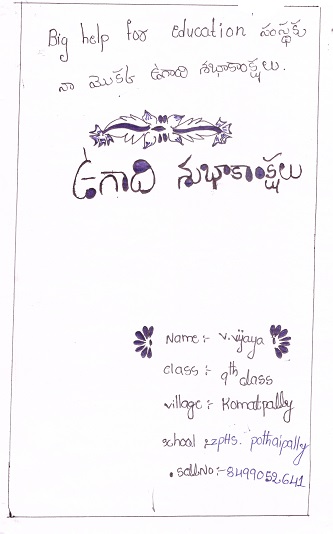 Big help for Education సంస్థకు
నా మొకటి ఉగాది శుభాకాంక్షలు.
ఉగాది శుభాకాంక్షలు
Name:- V.vijaya
class:- 9th class
village:- Komatpally
school :- zpHs. pothaipally
8499052641